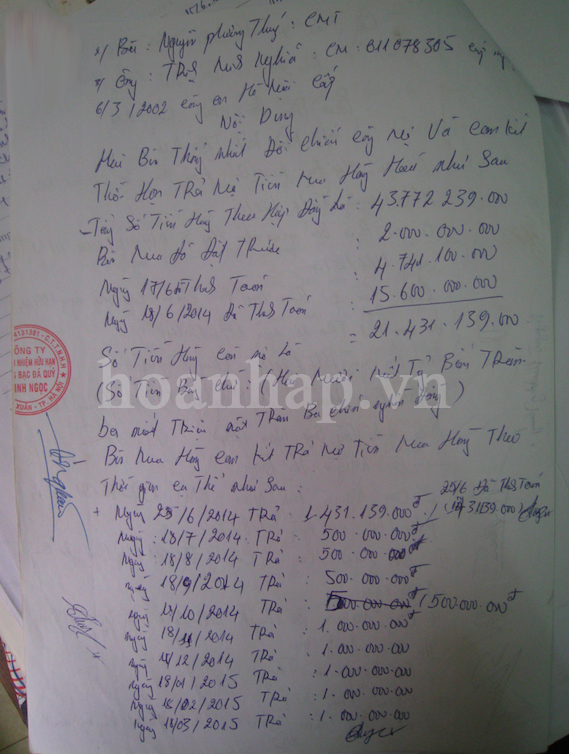 1/ Bên : Nguyễn phương Thuý : CMT
2/ Ông : TRịnh Minh Nghĩa : CM : 011078305 cấp ngày
6/3/2002 công an Hà Nội cấp
Nội Dung
Hai Bên Thống nhất Đối chiếu công nợ Và cam kết
Thời Hạn TRả Nợ Tiền Mua Hàng Hoá như Sau
- Tổng Số Tiền Hàng Theo Hợp Đồng Là : 43.772 239.000
Bên Mua Đã Đặt Trước : 2.000.000.000
Ngày 17/6 đã Thanh Toán : 4.741.100.000
Ngày 18/6/2014 Đã Thanh Toán : 15.600.000.000
= 21.431.139.000
Số Tiền Hàng còn nợ Là
(Số Tiền Bằng chữ : (Hai Mươi mốt Tỷ Bốn Trăm
ba mốt Triệu một Trăm Ba chín nghìn đồng)
Bên Mua Hàng cam kết TRả Nợ Tiền Mua Hàng Theo
Thời gian cụ Thể như Sau :
+ Ngày 25/6/2014 TRả : 1.431.139.000đ / 25/6 Đã Thanh Toán
Ngày : 18/7/2014. TRả : 500.000.000đ
Ngày : 18/8/2014 TRả : 500.000.000đ
ngày 18/9/2014 TRả : 500.000.000đ
ngày /10/2014 TRả : (500.000.000đ
ngày 18/11/2014 TRả : 1.000.000.000
ngày /12/2014 TRả : 1.000.000.000
ngày 18/01/2015 TRả : 1.000.000.000
ngày /02/2015 TRả : 1.000.000.000
ngày 18/03/2015 TRả : 1.000.000.000
CÔNG TY
NHIỆM HỮU HẠN
BẠC ĐÁ QUÝ
INH NGỌC
XUÂN - TP. HÀ NỘI
hoanhap.vn